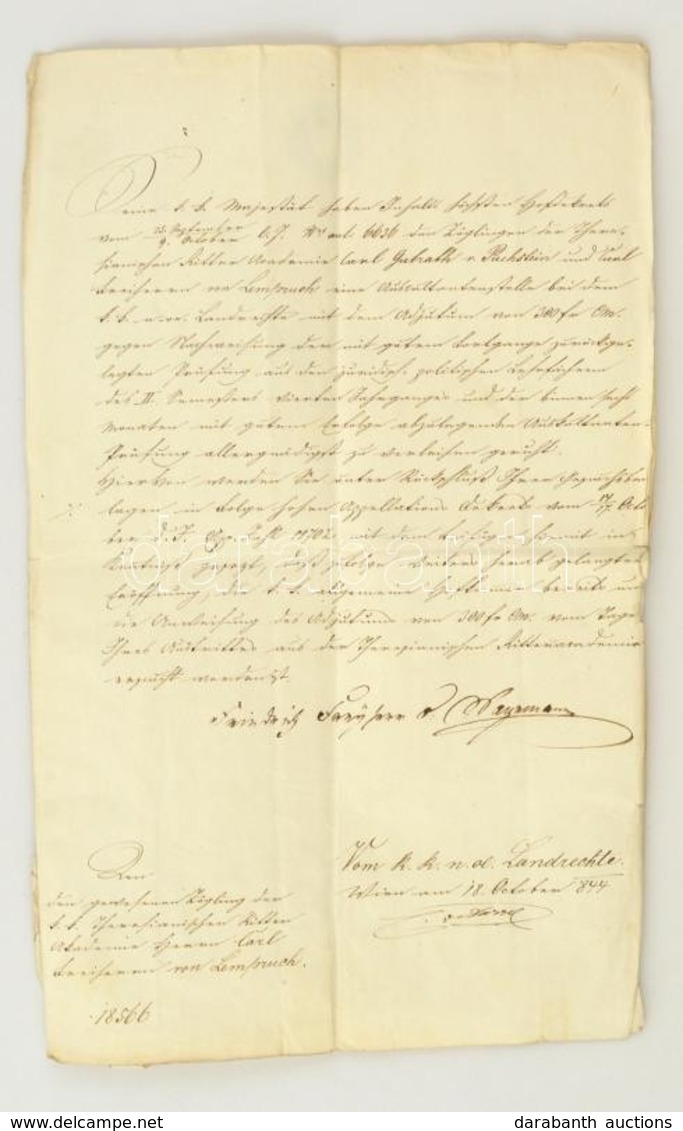 Seine k. k. Majestät haben Inhalts höchsten Hofdekrets
vom 23. September
9. October l. J. 6636 den Zöglingen der There-
sianischen Ritter Academie Carl v. Puchstein und Carl
Freiherrn von Lempruch eine Auscultantenstelle bei dem
k. k. n. oe. Landrechte mit dem Adjutum von 300 fr CM.
gegen Nachweisung der mit gutem Fortgange zurückge-
legten Prüfung aus den juridisch politischen Lehrfächern
des II. Semesters vierten Jahrganges und der binnen sechs
Monaten mit gutem Erfolge abzulegenden Auskultanten-
Prüfung allergnädigst zu verleihen geruht.
Hievon werden Sie unter Rückschluß Ihrer Gesuchsbei-
lagen in Folge hohen Appellations Dekrets vom 17 Octo-
ber d. J. Zahl mit dem in
Kenntniß gesetzt, daß herab gelangter
Eröffnung, die k. k. allgemeine Hofkammer bereits um
die Anweisung des Adjutums von 300 fr CM. vom Tage
Ihres Austrittes aus der Theresianischen Ritteracademie
ersucht worden ist.
Friedrich Freyherr v.
Vom k. k. n. oe. Landrechte.
Wien am 18. October 844
Den
den gewesenen Zögling der
k. k. Theresianischen Ritter
Akademie Herrn Carl
Freiherrn von Lempruch.
18566
darabanth
darabanth auctions
https://www.delcampe.net